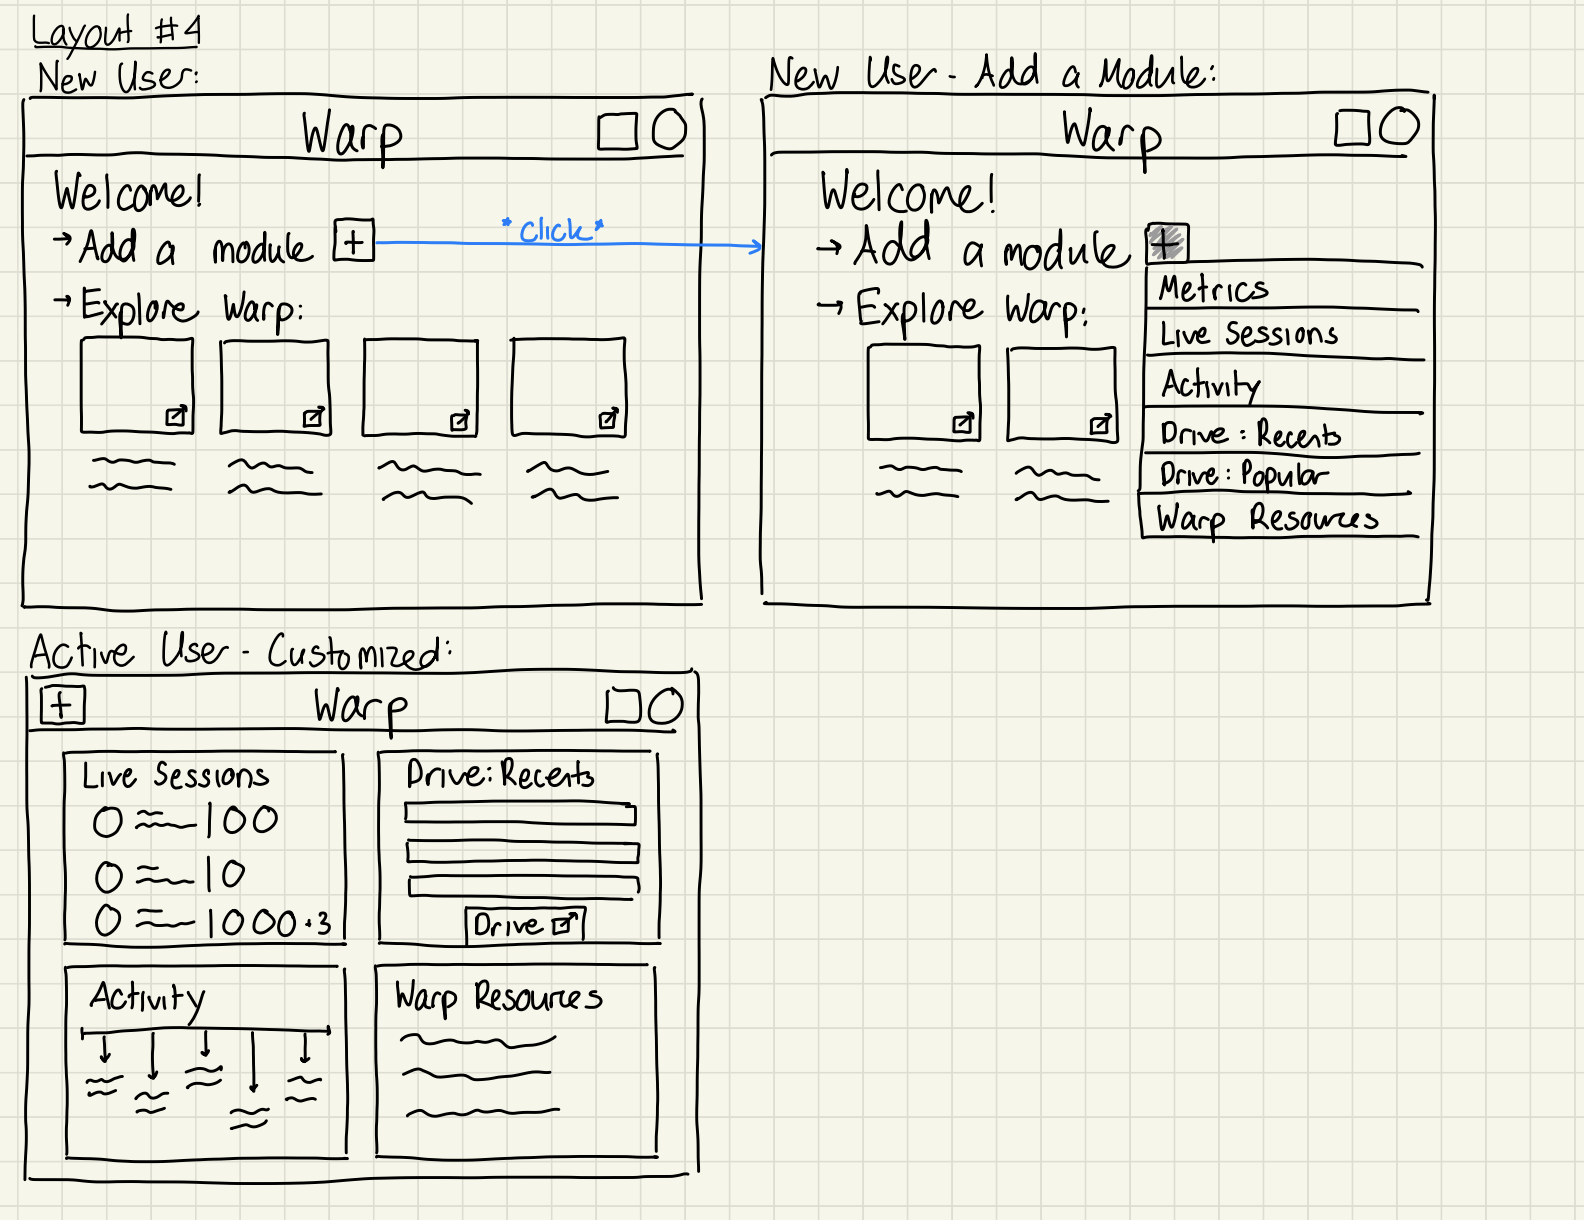 Layout #4
New User:
Warp
Welcome!
→ Add a module +
*click*
→ Explore Warp:
New User - Add a Module:
Warp
Welcome!
→ Add a module +
→ Explore Warp:
Metrics
Live Sessions
Activity
Drive: Recents
Drive: Popular
Warp Resources
Active User - Customized:
+ Warp
Live Sessions
| O O
| O
| O O O +3
Drive: Recents
Drive
Activity
Warp Resources